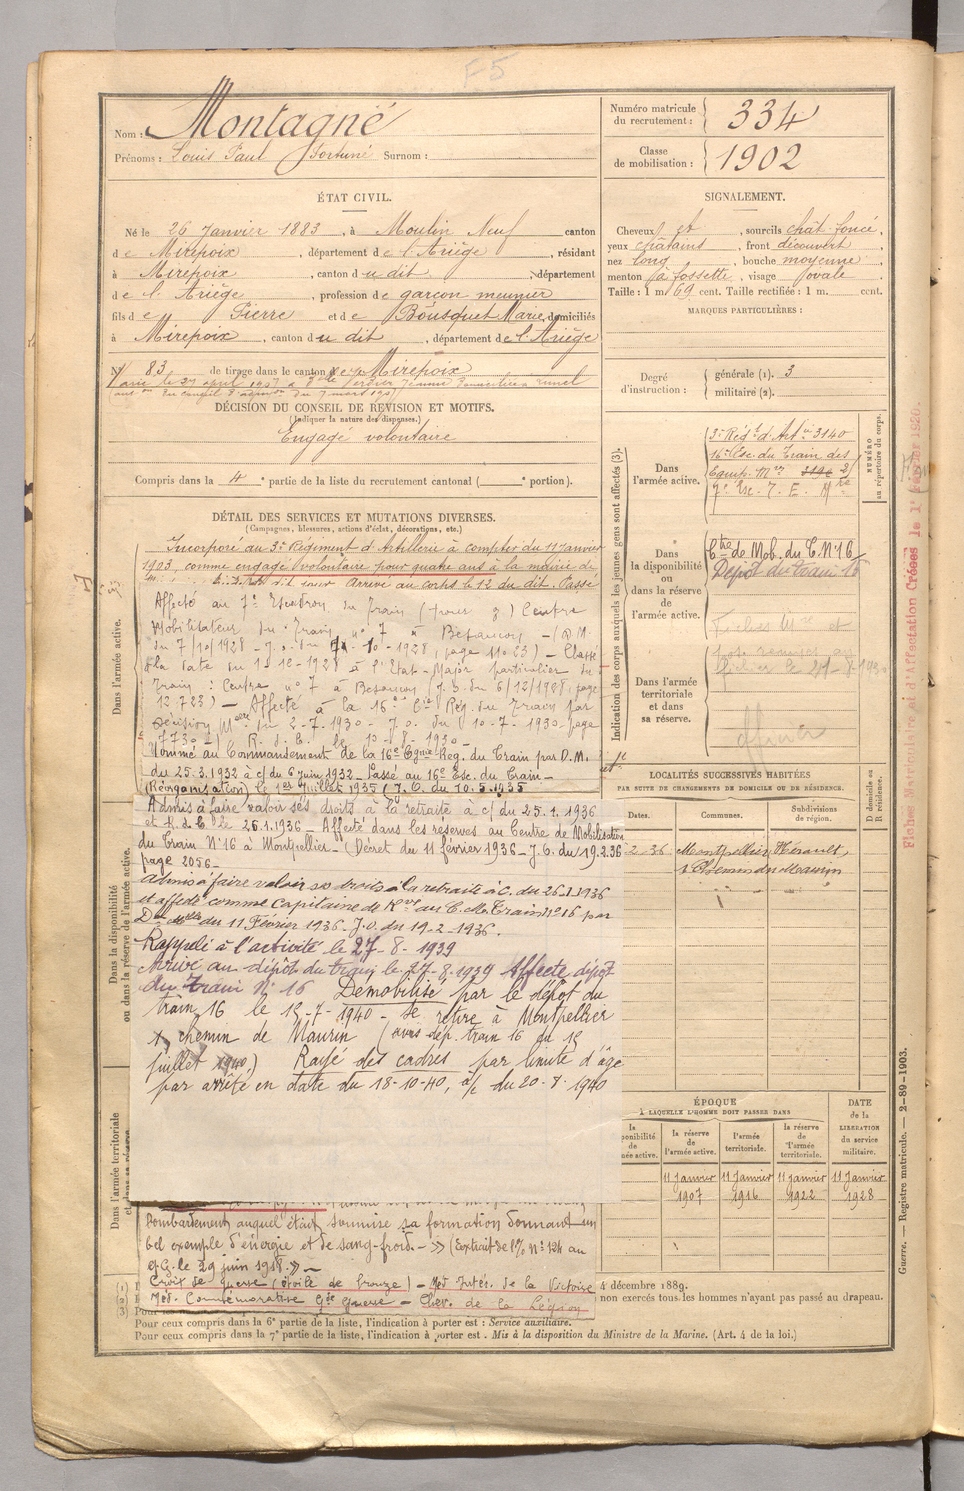 F5
Nom : Montagné
Prénoms : Louis Paul Fortuné Surnom :
Numéro matricule du recrutement : 334
Classe de mobilisation : 1902
ÉTAT CIVIL.
Né le 26 Janvier 1883, à Moulin Neuf canton
de Mirepoix, département de l'Ariège, résidant
à Mirepoix, canton du dit, département
de l'Ariège, profession de garçon meunier
fils de Pierre et de Bousquet Marie, domiciliés
à Mirepoix, canton du dit, département de l'Ariège
N° 83 de tirage dans le canton de Mirepoix
SIGNALEMENT.
Cheveux et, sourcils chât foncé,
yeux châtains, front découvert,
nez long, bouche moyenne,
menton à fossette, visage ovale.
Taille : 1 m. 69 cent. Taille rectifiée : 1 m. cent.
MARQUES PARTICULIÈRES :
Degré d'instruction : générale (1). 3
militaire (2).
DÉCISION DU CONSEIL DE RÉVISION ET MOTIFS.
(Indiquer la nature des dispenses.)
Engagé volontaire
Compris dans la 4e partie de la liste du recrutement cantonal ( e portion).
DÉTAIL DES SERVICES ET MUTATIONS DIVERSES.
(Campagnes, blessures, actions d'éclat, décorations, etc.)
Incorporé au 3e Régiment d'Artillerie à compter du 11 Janvier
1903, comme engagé volontaire pour quatre ans à la mairie de
Arrivé au corps le 12 du dit. Passé
Affecté au 7e Escadron du Train (pour ) Centre
Mobilisateur du Train n° 7 à Besançon - (D.M.
du 7/10/1928 - J.O. du 10-1928, page 11023) - Classé
à la date du 1-12-1928 à l'Etat-Major particulier du
Train : Centre n° 7 à Besançon (J.O. du 6/12/1928, page
12723) - Affecté à la 16e Cie Rég. du Train par
Décision Melle du 2-7-1930 - J.O. du 10-7-1930 - page
7730 -) R. d. C. le 10-8-1930 -
Nommé au Commandement de la 16e Cgnie Rég. du Train par D.M.
du 25.3.1932 à c/ du 6 juin 1932 - Passé au 16e Esc. du Train -
(Réorganisation) le 1er Juillet 1935 (J.O. du 10.5.1935
Admis à faire valoir ses droits à la retraite à c/ du 25.1.1936
et R.d.C. le 25.1.1936 - Affecté dans les réserves au Centre de Mobilisation
du Train N° 16 à Montpellier - (Décret du 11 février 1936 - J.O. du 19.2.36
page 2056 -
Admis à faire valoir ses droits à la retraite à c. du 26.1.1936
et affecté comme Capitaine de Rve au C.M. Train n° 16 par
Don Melle du 11 Février 1936. J.O. du 19-2-1936.
Rappelé à l'activité le 27-8-1939
Arrivé au dépôt du train le 27-8-1939 Affecté dépôt
du train N° 16 Démobilisé par le dépôt du
train 16 le 15-7-1940 - se retire à Montpellier
1, chemin de Maurin (avis dép. train 16 du 15
juillet 1940.) Rayé des cadres par limite d'âge
par arrêté en date du 18-10-40, à/c du 20-8-1940
bombardement auquel était soumise sa formation donnant un
bel exemple d'énergie et de sang-froid. - » (Extrait de l'O/ N° 124 au
Q.G. le 29 juin 1918. » -
Croix de guerre (étoile de bronze) - Méd. Intér. de la Victoire
Méd. Commémorative Gde guerre - Chev. de la Légion
Dans l'armée active.
Dans la disponibilité ou dans la réserve de l'armée active.
Dans l'armée territoriale et dans sa réserve.
Indication des corps auxquels les jeunes gens sont affectés (3).
NUMÉRO au répertoire du corps.
Dans l'armée active.
3e Régt d'Artie 3140
16e Esc. du Train des
Equip. Mres 3196
7e Esc. T. E. Mre
Dans la disponibilité ou dans la réserve de l'armée active.
Ctre de Mob. du C. N° 16
Dépôt du train 16
Dans l'armée territoriale et dans sa réserve.
officier
LOCALITÉS SUCCESSIVES HABITÉES
PAR SUITE DE CHANGEMENTS DE DOMICILE OU DE RÉSIDENCE.
Dates. Communes. Subdivisions de région. D domicile ou R résidence.
2-36 Montpellier Hérault,
1 Chemin de Maurin
ÉPOQUE
À LAQUELLE L'HOMME DOIT PASSER DANS
la réserve de l'armée active. l'armée territoriale. la réserve de l'armée territoriale.
DATE de la LIBÉRATION du service militaire.
11 Janvier 1907 11 Janvier 1916 11 Janvier 1922 11 Janvier 1928
4 décembre 1889.
non exercés tous les hommes n'ayant pas passé au drapeau.
Pour ceux compris dans la 6e partie de la liste, l'indication à porter est : Service auxiliaire.
Pour ceux compris dans la 7e partie de la liste, l'indication à porter est : Mis à la disposition du Ministre de la Marine. (Art. 4 de la loi.)
Guerre. — Registre matricule. — 2-89-1903.
Fiches Matriculaire et d'Affectation Créées le 1er Février 1920.